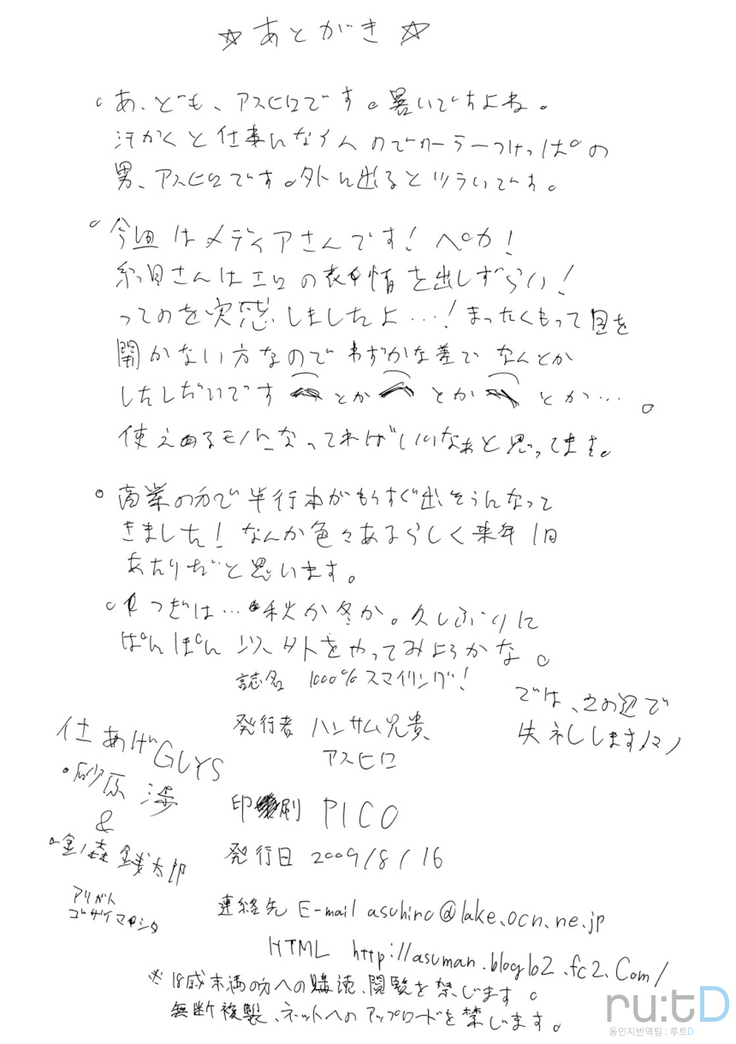 ☆あとがき☆
。あ、ども、アスヒロです。暑いですよね。
汗かくと仕事にならんのでクーラーつけっぱの
男、アスヒロです。外に出るとツライです。
。今回はメディアさんです!ペカ!
糸目さんはエロの表情を出しずらい!
ってのを実感しましたよ…!まったくもって目を
開かない方なのでわずかな差でなんとか
したしだいです とか とか とか…。
使えるモノになってればいいなぁと思ってます。
。商業の方で単行本がもうすぐ出そうんなって
きました!なんか色々あるらしく来年1月
あたりだと思います。
。つぎは…秋か冬か。久しぶりに
ぱんぽん以外をやってみようかな。
では、この辺で
失礼します
誌名 1000%スマイリング!
発行者 ハンサム兄貴
アスヒロ
印刷 PICO
発行日 2009/8/16
連絡先 E-mail asuhiro@lake.ocn.ne.jp
HTML http://asuman.blog102.fc2.com/
※18歳未満の方への購読、閲覧を禁じます。
無断複製、ネットへのアップロードを禁じます。
仕あげGUYS
・砂原渉
&
・金ノ森銭太郎
アリガト
ゴザイマシタ
ru:tD
동인지번역팀 : 루트D